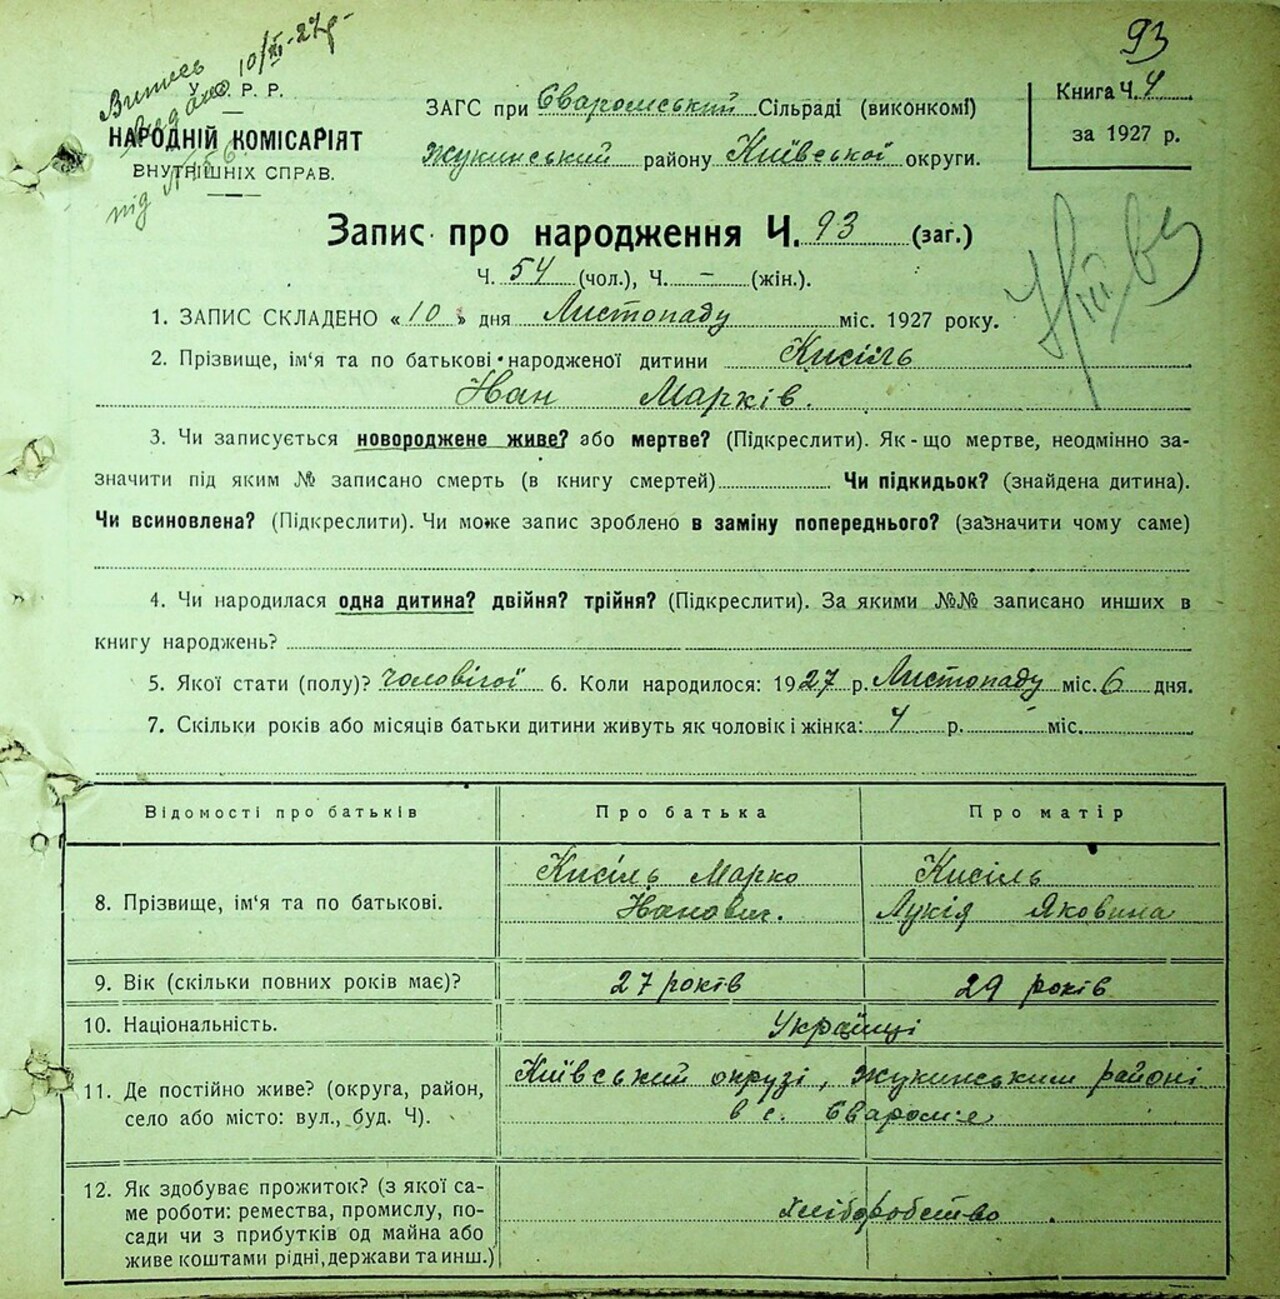 93
Витись
видано 10/XI-27р-
під № 156
У. С. Р. Р.
НАРОДНІЙ КОМІСАРІЯТ
ВНУТРІШНІХ СПРАВ.
ЗАГС при Єваромський Сільраді (виконкомі)
Жукинський району Київської округи.
Книга Ч. 4
за 1927 р.
Запис про народження Ч. 93 (заг.)
Ч. 54 (чол.), Ч. – (жін.).
1. ЗАПИС СКЛАДЕНО « 10 » дня Листопаду міс. 1927 року.
2. Прізвище, ім‘я та по батькові народженої дитини Кисіль
Иван Марків.
3. Чи записується новороджене живе? або мертве? (Підкреслити). Як-що мертве, неодмінно за-
значити під яким № записано смерть (в книгу смертей) Чи підкидьок? (знайдена дитина).
Чи всиновлена? (Підкреслити). Чи може запис зроблено в заміну попереднього? (зазначити чому саме)
4. Чи народилася одна дитина? двійня? трійня? (Підкреслити). За якими №№ записано инших в
книгу народжень?
5. Якої стати (полу)? чоловічої 6. Коли народилося: 1927 р. Листопаду міс. 6 дня.
7. Скільки років або місяців батьки дитини живуть як чоловік і жінка: 4 р. – міс.
Відомості про батьків Про батька Про матір
8. Прізвище, ім‘я та по батькові. Кисіль Марко Кисіль
Иванович. Лукія Яковина
9. Вік (скільки повних років має)? 27 років 29 років
10. Національність. Українці
11. Де постійно живе? (округа, район, Київський окрузі, Жукинським районі
село або місто: вул., буд. Ч). в с. Єваромє
12. Як здобуває прожиток? (з якої са-
ме роботи: ремества, промислу, по- Хліборобство.
сади чи з прибутків од майна або
живе коштами рідні, держави та инш.)